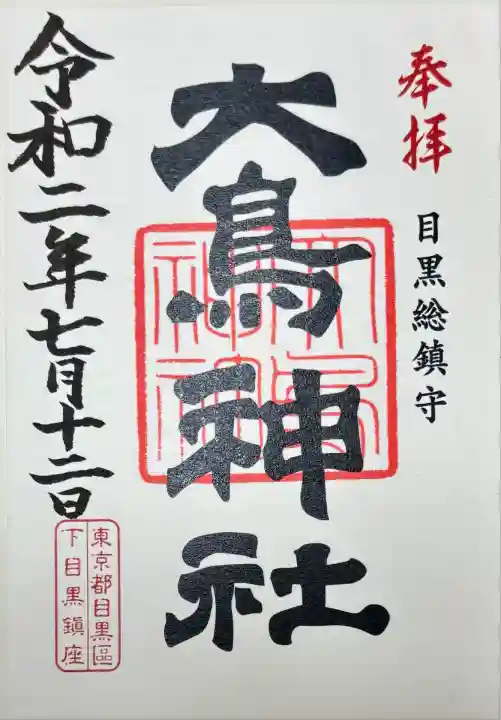 奉拝
目黒総鎮守
大鳥神社
大鳥
神社
令和二年七月十二日
東京都目黒區
下目黒鎮座